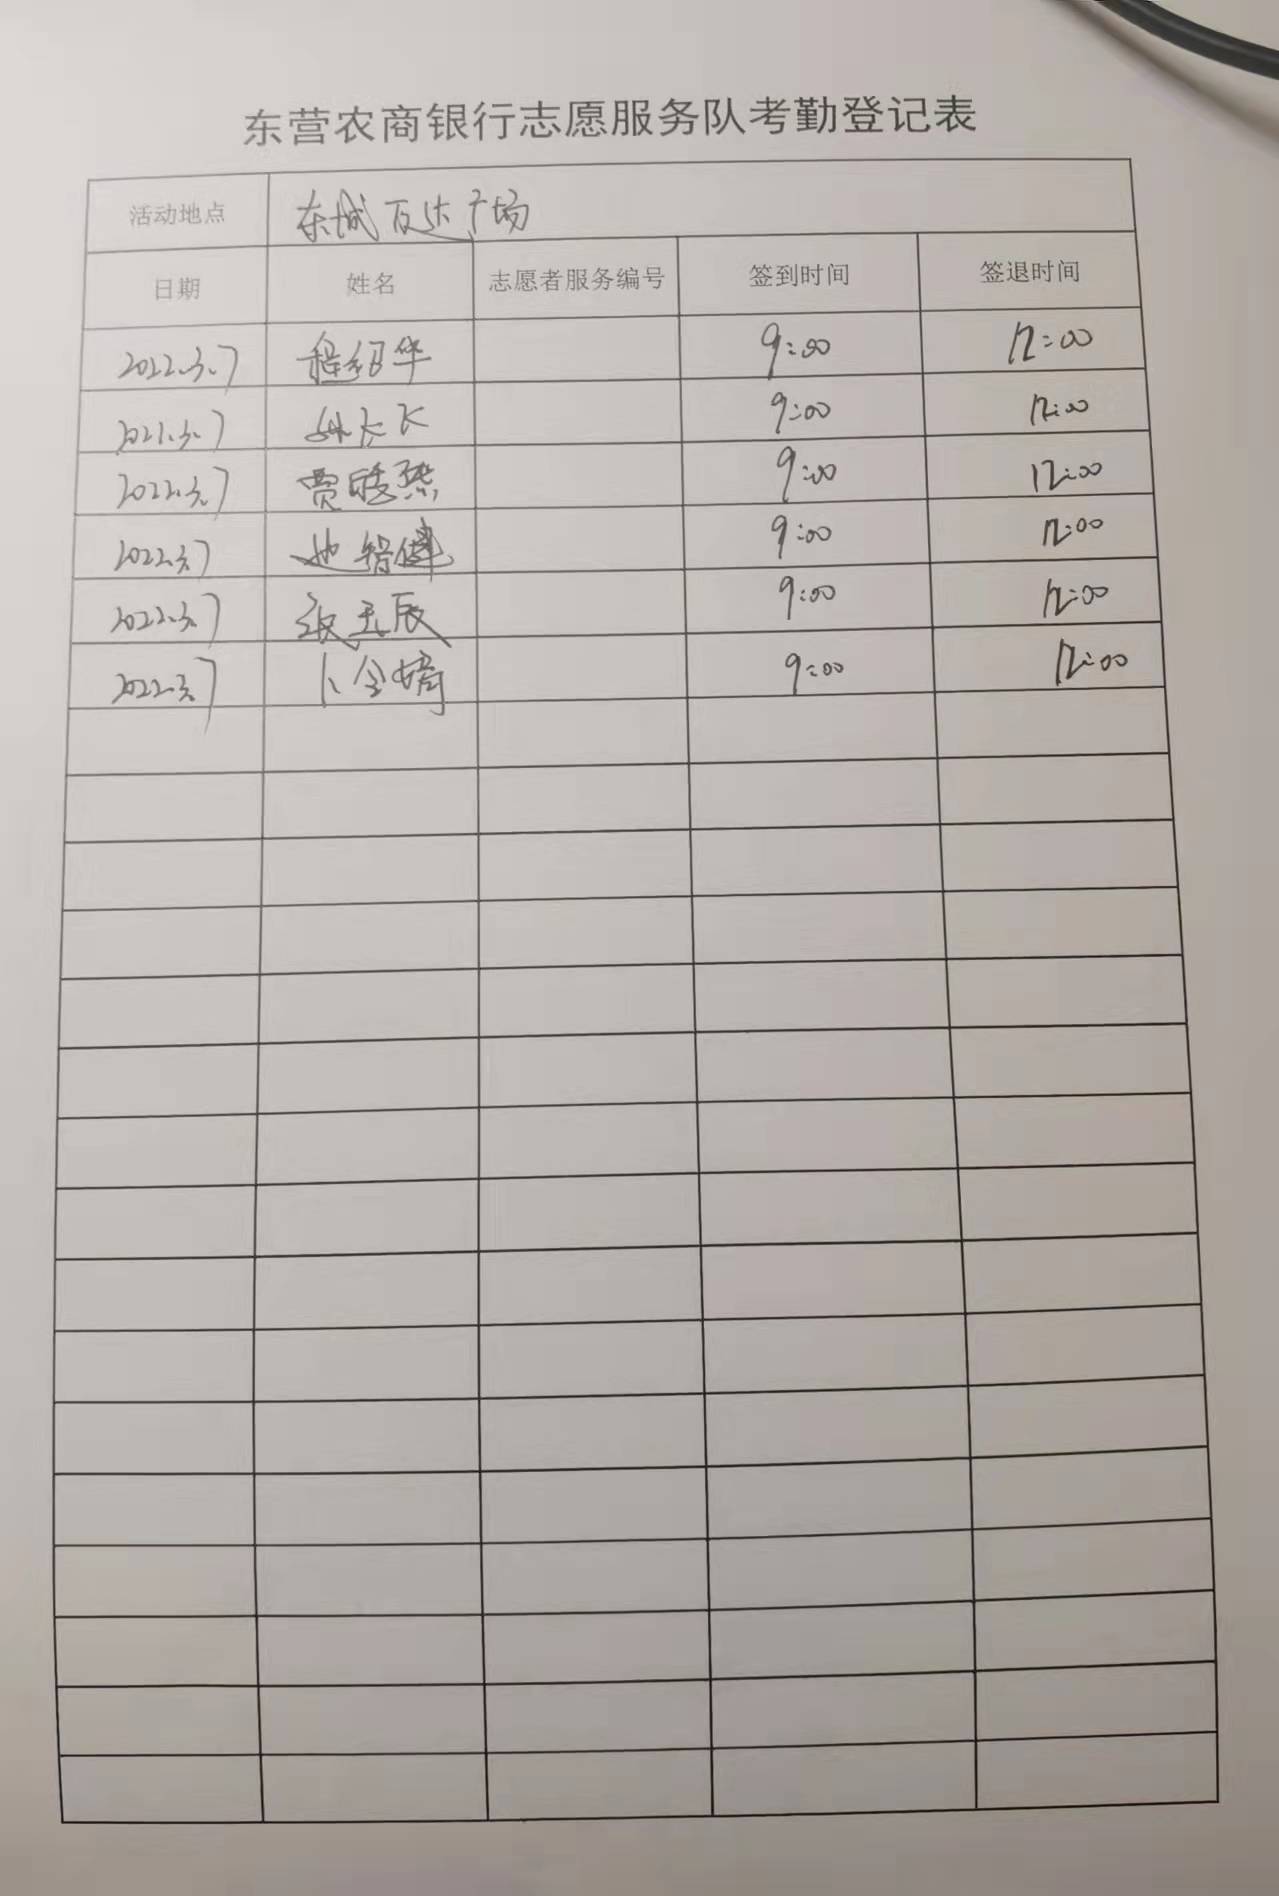 东营农商银行志愿服务队考勤登记表
活动地点 东城万达广场
日期 姓名 志愿者服务编号 签到时间 签退时间
2022.3.7 程绍华 9:00 12:00
2022.3.7 9:00 12:00
2022.3.7 贾晓燕 9:00 12:00
2022.3.7 智健 9:00 12:00
2022.3.7 张玉辰 9:00 12:00
2022.3.7 卜令婧 9:00 12:00